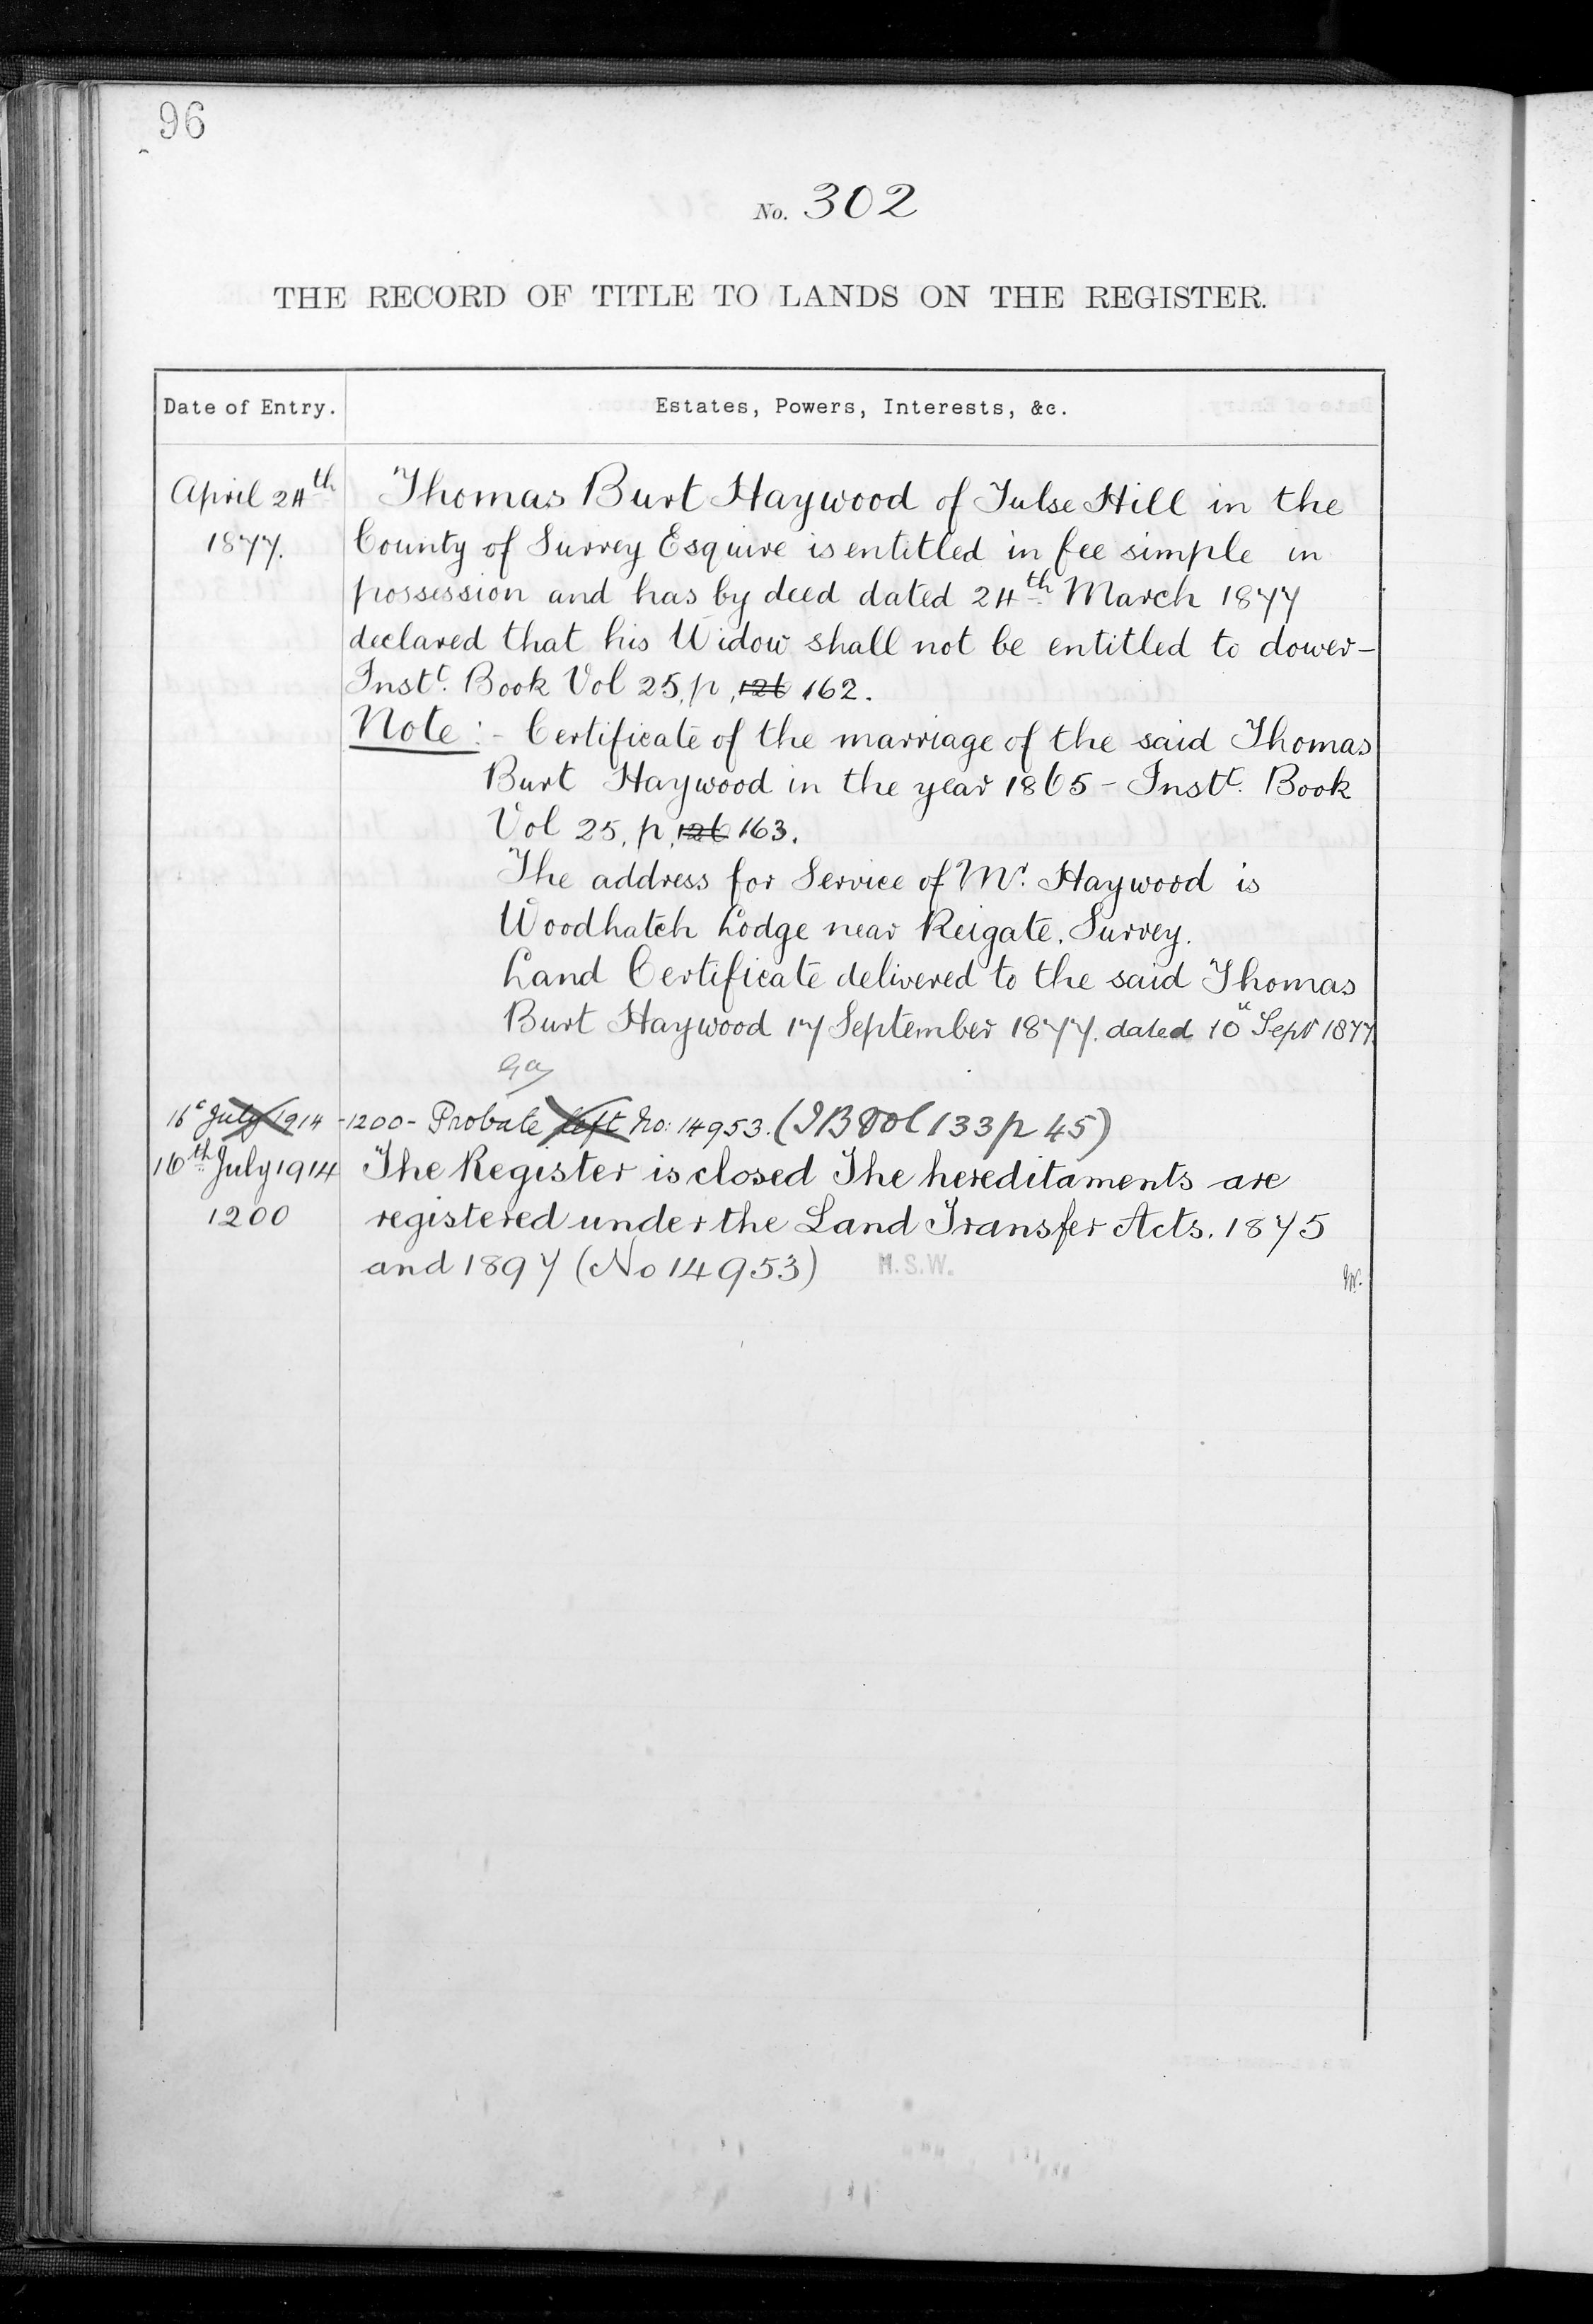 96
No. 302
THE RECORD OF TITLE TO LANDS ON THE REGISTER.
Date of Entry. Estates, Powers, Interests, &c.
April 24th Thomas Burt Haywood of Tulse Hill in the
1877. County of Surrey Esquire is entitled in fee simple in
possession and has by deed dated 24th March 1877
declared that his Widow shall not be entitled to dower—
Instt. Book Vol 25, p, 126 162.
Note:- Certificate of the marriage of the said Thomas
Burt Haywood in the year 1865 - Instt. Book
Vol 25, p, 126 163.
The address for Service of Mr. Haywood is
Woodhatch Lodge near Reigate. Surrey.
Land Certificate delivered to the said Thomas
Burt Haywood 17 September 1877. dated 10" Sept 1877.
July 1914 -1200- Probate left No: 14953. (IB Vol 133 p 45)
16th July 1914 The Register is closed The hereditaments are
1200 registered under the Land Transfer Acts. 1875
and 1897 (No 14953) H.S.W.